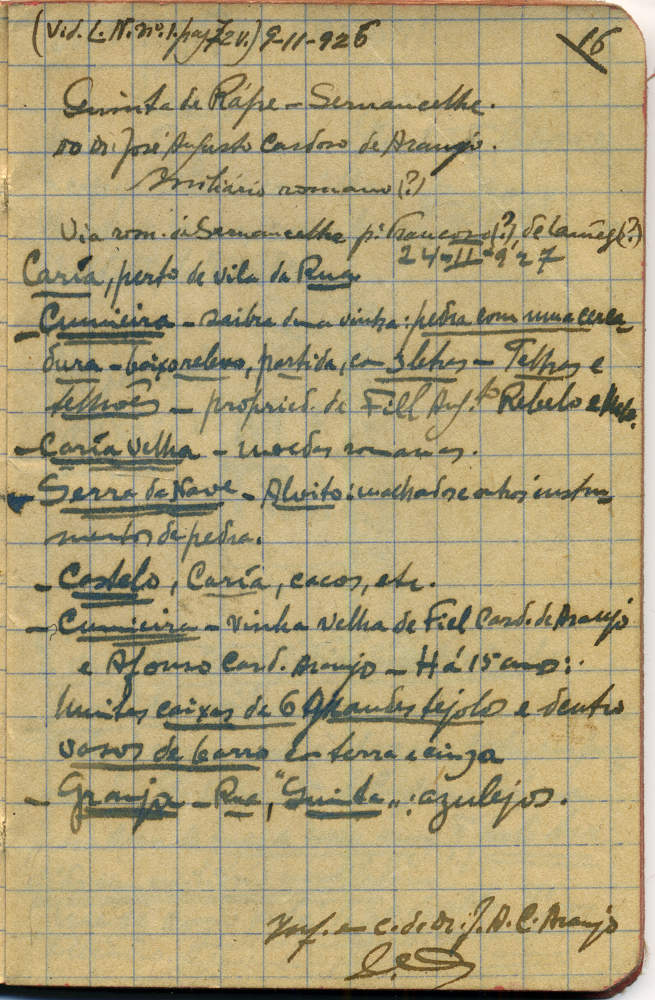 (Vid. L. N. nº. 1. pag. 72 v.) 9-11-926
16
Quinta de Rápe - Sernancelhe.
Do Dr. José Augusto Cardoso de Araujo.
Miliário romano (?)
Via rom. de Sernancelhe pª. Trancoso (?), de Lamego (?)
24-II-927
Caría, perto de vila da Rua.
- Cumieira - saibro duma vinha: pedra com uma cerca
dura - baixo relevo, partida, com 3 letras - Telhas e
telhões - propried. de Fiel Aug.to Rebelo e
- Caría Velha - moedas romanas.
- Serra da Nave - Alvito: machados e outros instru
mentos de pedra.
- Castelo, Caría, cacos, etc.
- Cumieira - vinha velha de Fiel Card. de Araujo
e Afonso Card. Araujo - Há 15 anos:
Muitas caixas de 6 grandes tejolos e dentro
vasos de barro com terra e cinza
- Granja - Rua, "Quinta": azulejos.
Inf. em c. de Dr. J. A. C. Araujo